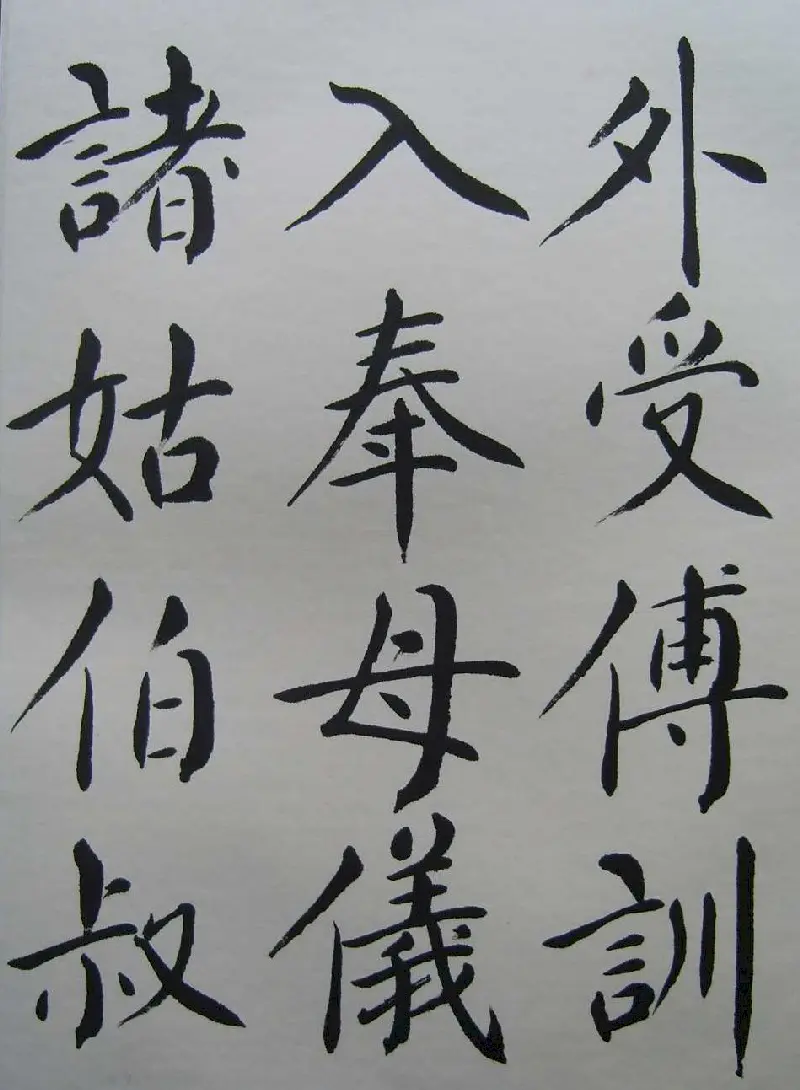 外受傅訓
入奉母儀
諸姑伯叔